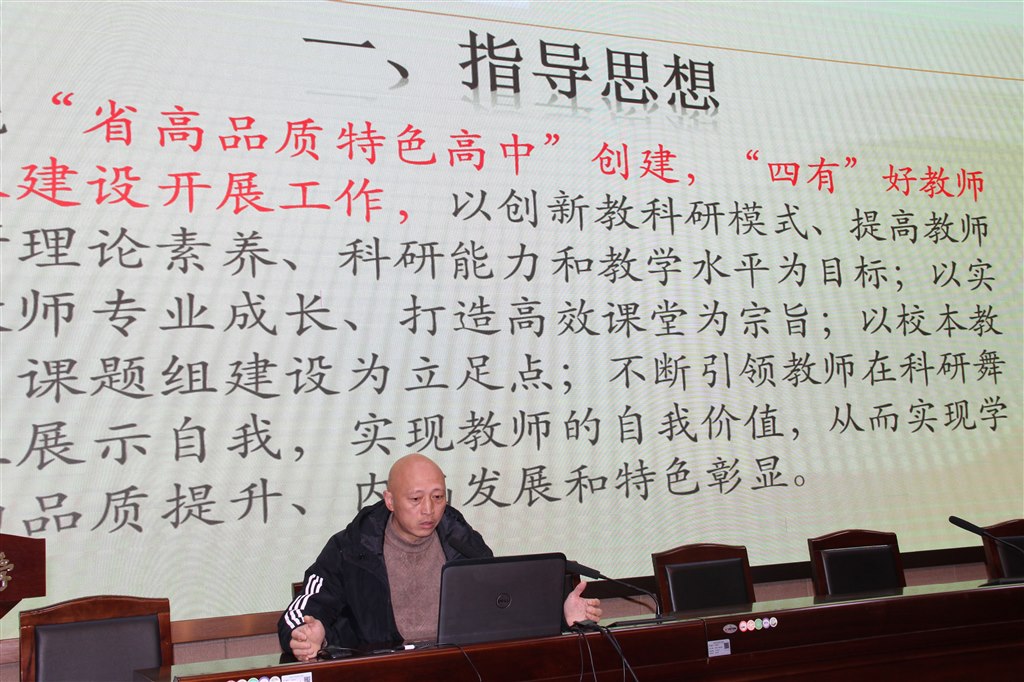 一、指导思想
“省高品质特色高中”创建，“四有”好教师
建设开展工作，以创新教科研模式、提高教师
理论素养、科研能力和教学水平为目标；以实
师专业成长、打造高效课堂为宗旨；以校本教
课题组建设为立足点；不断引领教师在科研舞
展示自我，实现教师的自我价值，从而实现学
品质提升、内 发展和特色彰显。
DELL